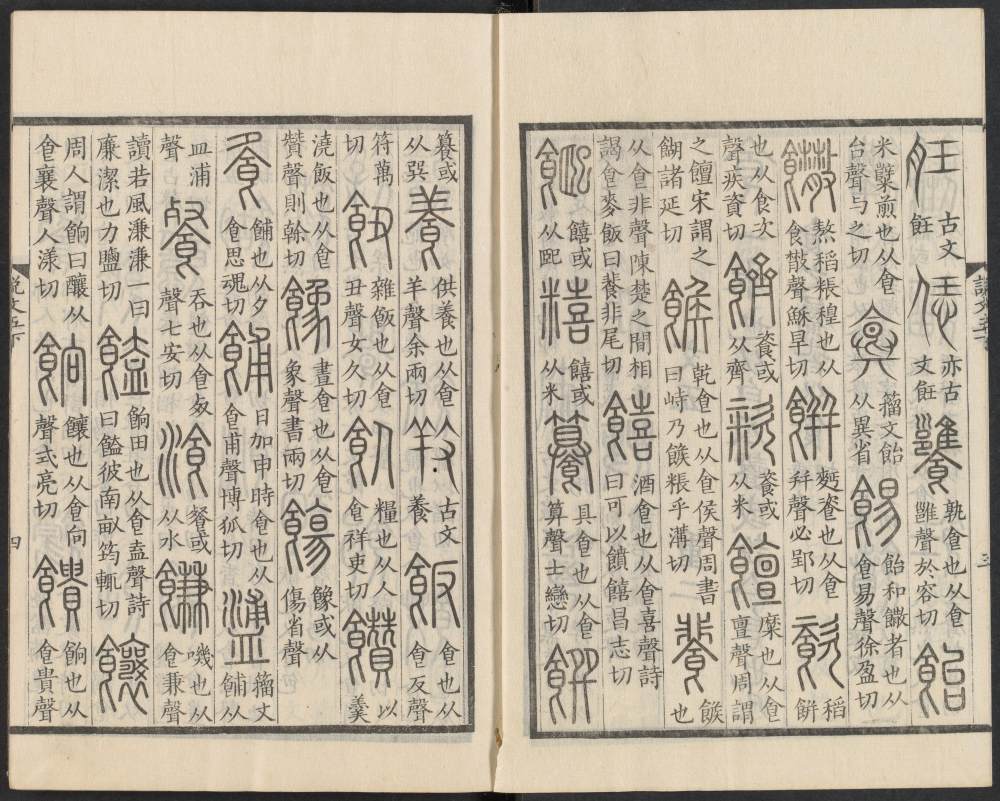 飪 古文飪 恁 亦古文飪 饔 孰食也从食雝聲於容切 飴
米糱煎也从食台聲与之切 𩛛 籒文飴从異省 餳 飴和饊者也从食易聲徐盈切
饊 熬稻粻䅣也从食散聲穌旱切 餅 麪餈也从食幷聲必郢切 餈 稻餅
也从食次聲疾資切 䭣 餈或从齊 粢 餈或从米 饘 糜也从食亶聲周謂
之饘宋謂之餬諸延切 餱 乾食也从食侯聲周書曰峙乃餱粻乎溝切 餥 餱也
从食非聲陳楚之閒相謁食麥飯曰餥非尾切 饎 酒食也从食喜聲詩曰可以饋饎昌志切
饎或从巸 糦 饎或从米 籑 具食也从食算聲士戀切 饌
說文五下
三
籑或从巽 養 供養也从食羊聲余兩切 羖 古文養 飯 食也从食反聲
符萬切 䬼 雜飯也从食丑聲女久切 飤 糧也从人食祥吏切 饡 以羹
澆飯也从食贊聲則榦切 𩞧 晝食也从食象聲書兩切 𩜋 𩞧或从傷省聲
飧 餔也从夕食思魂切 餔 日加申時食也从食甫聲博狐切 𥂈 籒文餔从
皿浦聲 餐 吞也从食𣦼聲七安切 湌 餐或从水 䭑 嘰也从食兼聲
讀若風溓溓一曰廉潔也力鹽切 饁 餉田也从食盍聲詩曰饁彼南畝筠輒切 饟
周人謂餉曰饟从食襄聲人漾切 餉 饟也从食向聲式亮切 饋 餉也从食貴聲
說文五下
四